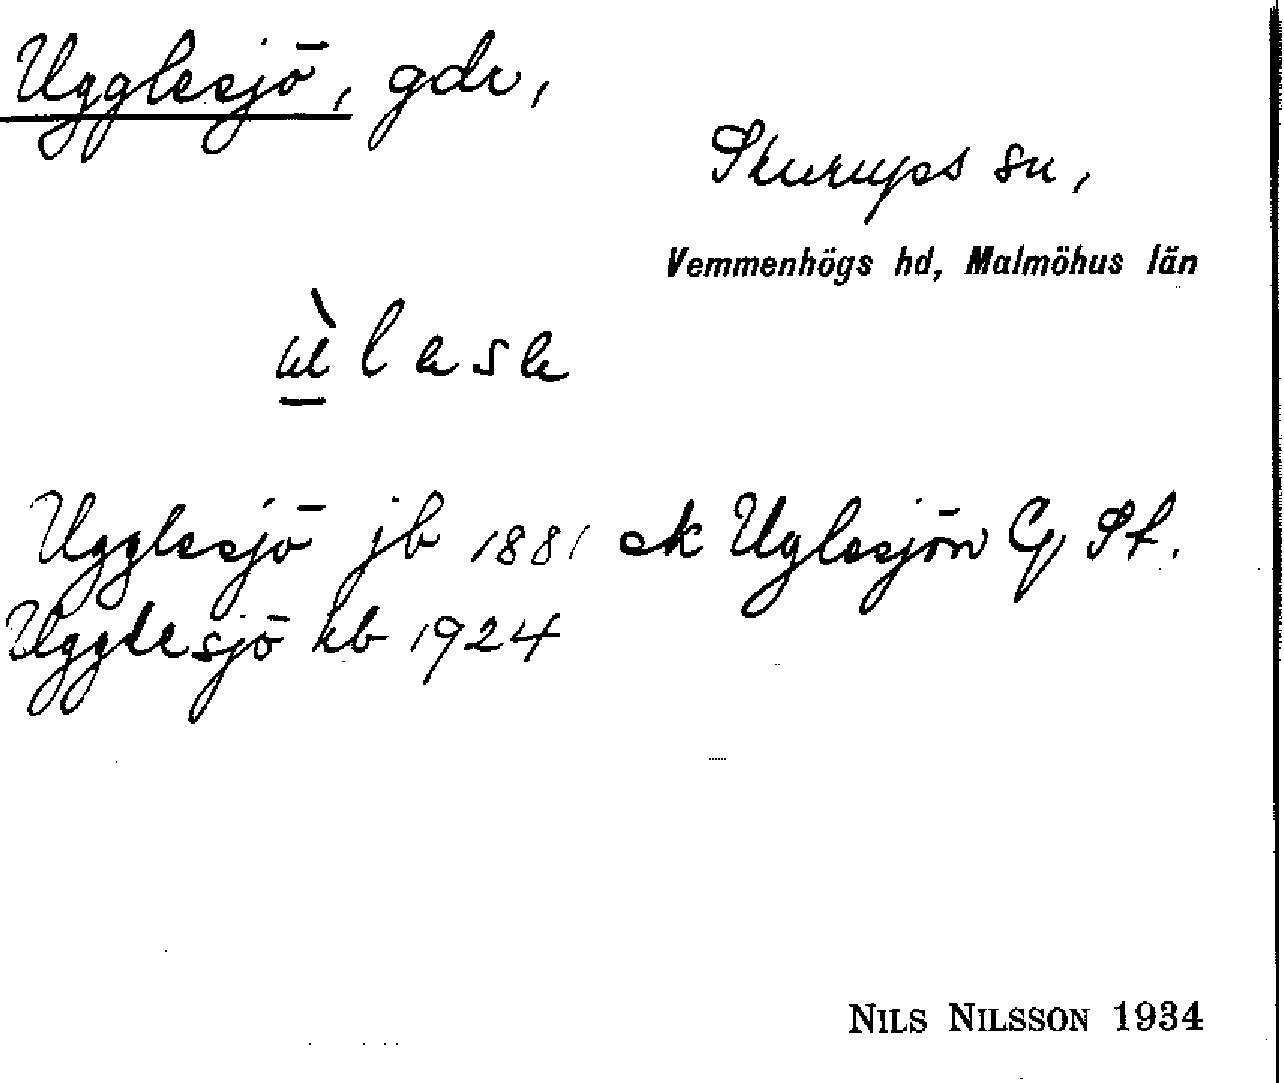 Ugglesjö, gdr,
Skurups sn,
Vemmenhögs hd, Malmöhus län
Ugglesjö jb 1881 ek Uglesjön G, St.
Ugglesjö kb 1924
NILS NILSSON 1934